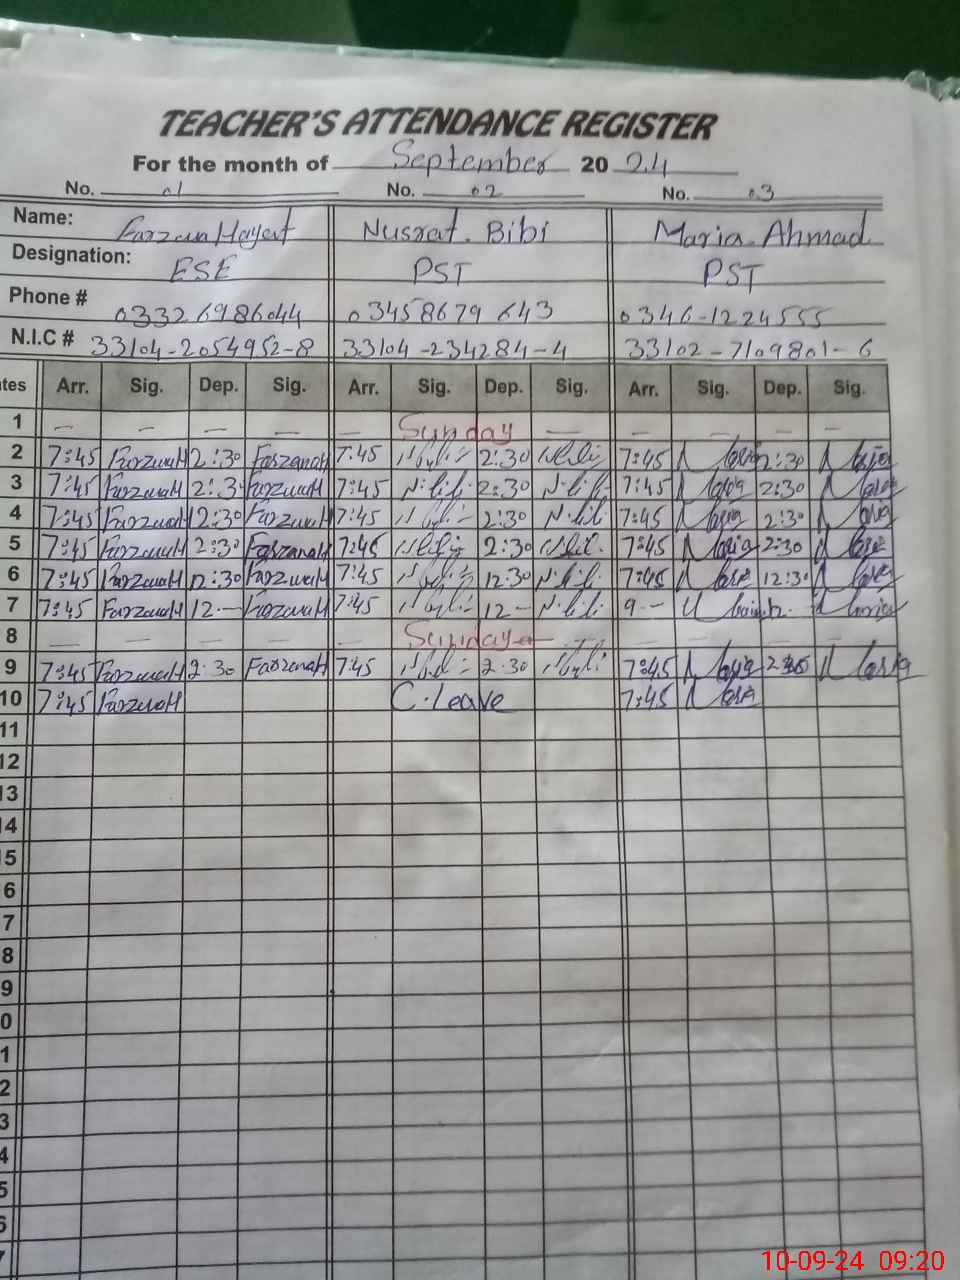 TEACHER'S ATTENDANCE REGISTER
For the month of September 2024
No. 01 No. 02 No. 03
Name: Farzana Hayat Nusrat. Bibi Maria. Ahmad
Designation: ESE PST PST
Phone # 03326986044 03458679 643 0346-1224555
N.I.C # 33104-2054952-8 33104-234284-4 33102-7109801-6
tes Arr. Sig. Dep. Sig. Arr. Sig. Dep. Sig. Arr. Sig. Dep. Sig.
1 — — — — — Sunday — — — — —
2 7:45 FarzanaH 2:30 FarzanaH 7:45 2:30 7:45 Maria 2:30 Maria
3 7:45 FarzanaH 2:3 FarzanaH 7:45 N.bibi 2:30 N.bibi 7:45 Maria 2:30 Maria
4 7:45 FarzanaH 2:30 FarzanaH 7:45 2:30 N.bibi 7:45 Maria 2:30 Maria
5 7:45 FarzanaH 2:30 FarzanaH 7:45 2:30 7:45 Maria 2:30 Maria
6 7:45 FarzanaH 12:30 FarzanaH 7:45 12:30 N.bibi 7:45 Maria 12:30 Maria
7 7:45 FarzanaH 12— FarzanaH 7:45 12— N.bibi 9-- Maria
8 — — — — — Sunday — — — — —
9 7:45 FarzanaH 2:30 FarzanaH 7:45 2:30 7:45 Maria Maria
10 7:45 FarzanaH C.leave 7:45 Maria
11
12
13
14
5
6
7
8
9
0
1
2
3
4
5
6
7
10-09-24 09:20